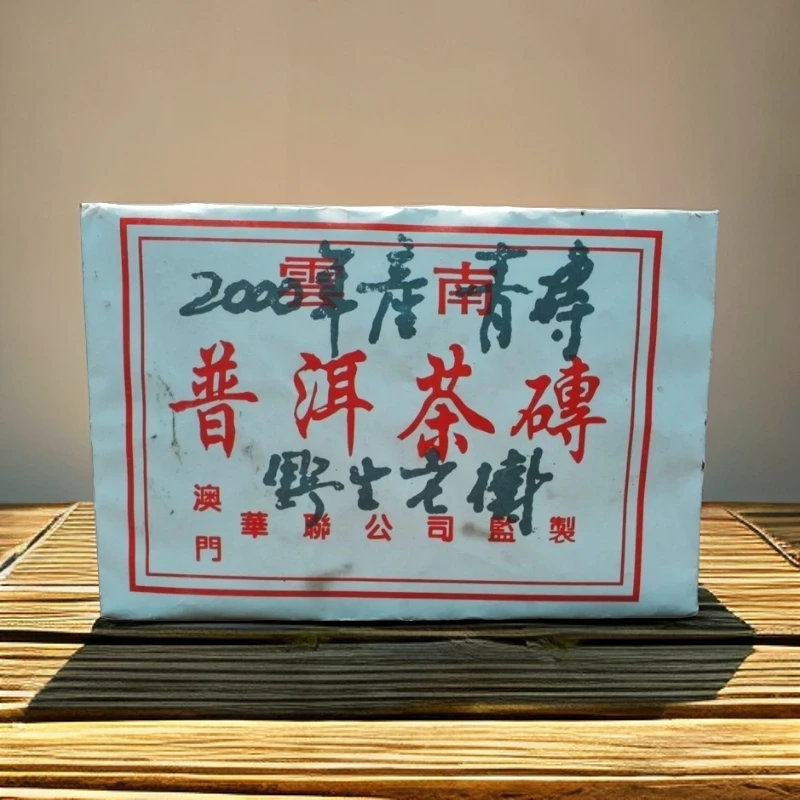 雲南
2000年產 青
普洱茶磚
野生老樹
澳門
華聯公司監製